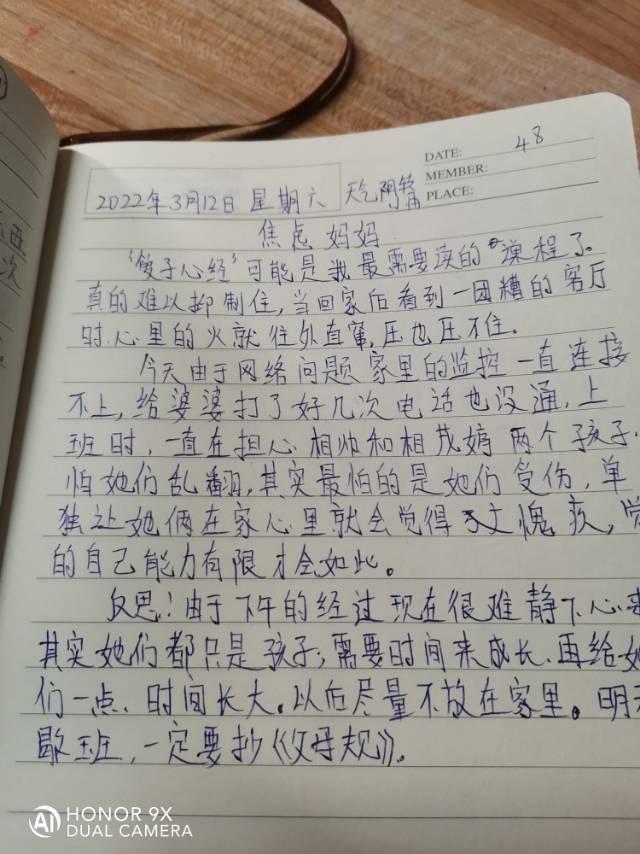 DATE: 48
MEMBER:
PLACE:
2022年3月12日 星期六 天气阴转
焦虑妈妈
《复子心经》可能是我最需要读的课程了。
真的难以抑制住,当回家后看到一团糟的客厅
时心里的火就往外直窜,压也压不住。
今天由于网络问题家里的监控一直连接
不上,给婆婆打了好几次电话也没通,上
班时,一直在担心相帅和相茂婷两个孩子.
怕她们乱翻,其实最怕的是她们受伤,单
独让她俩在家心里就会觉得对愧疚,觉
的自己能力有限才会如此。
反思!由于下午的经过现在很难静下心来
其实她们都只是孩子;需要时间来成长.再给她
们一点.时间长大。以后尽量不放在家里。明天
歇班,一定要抄《父母规》。
HONOR 9X
AI DUAL CAMERA